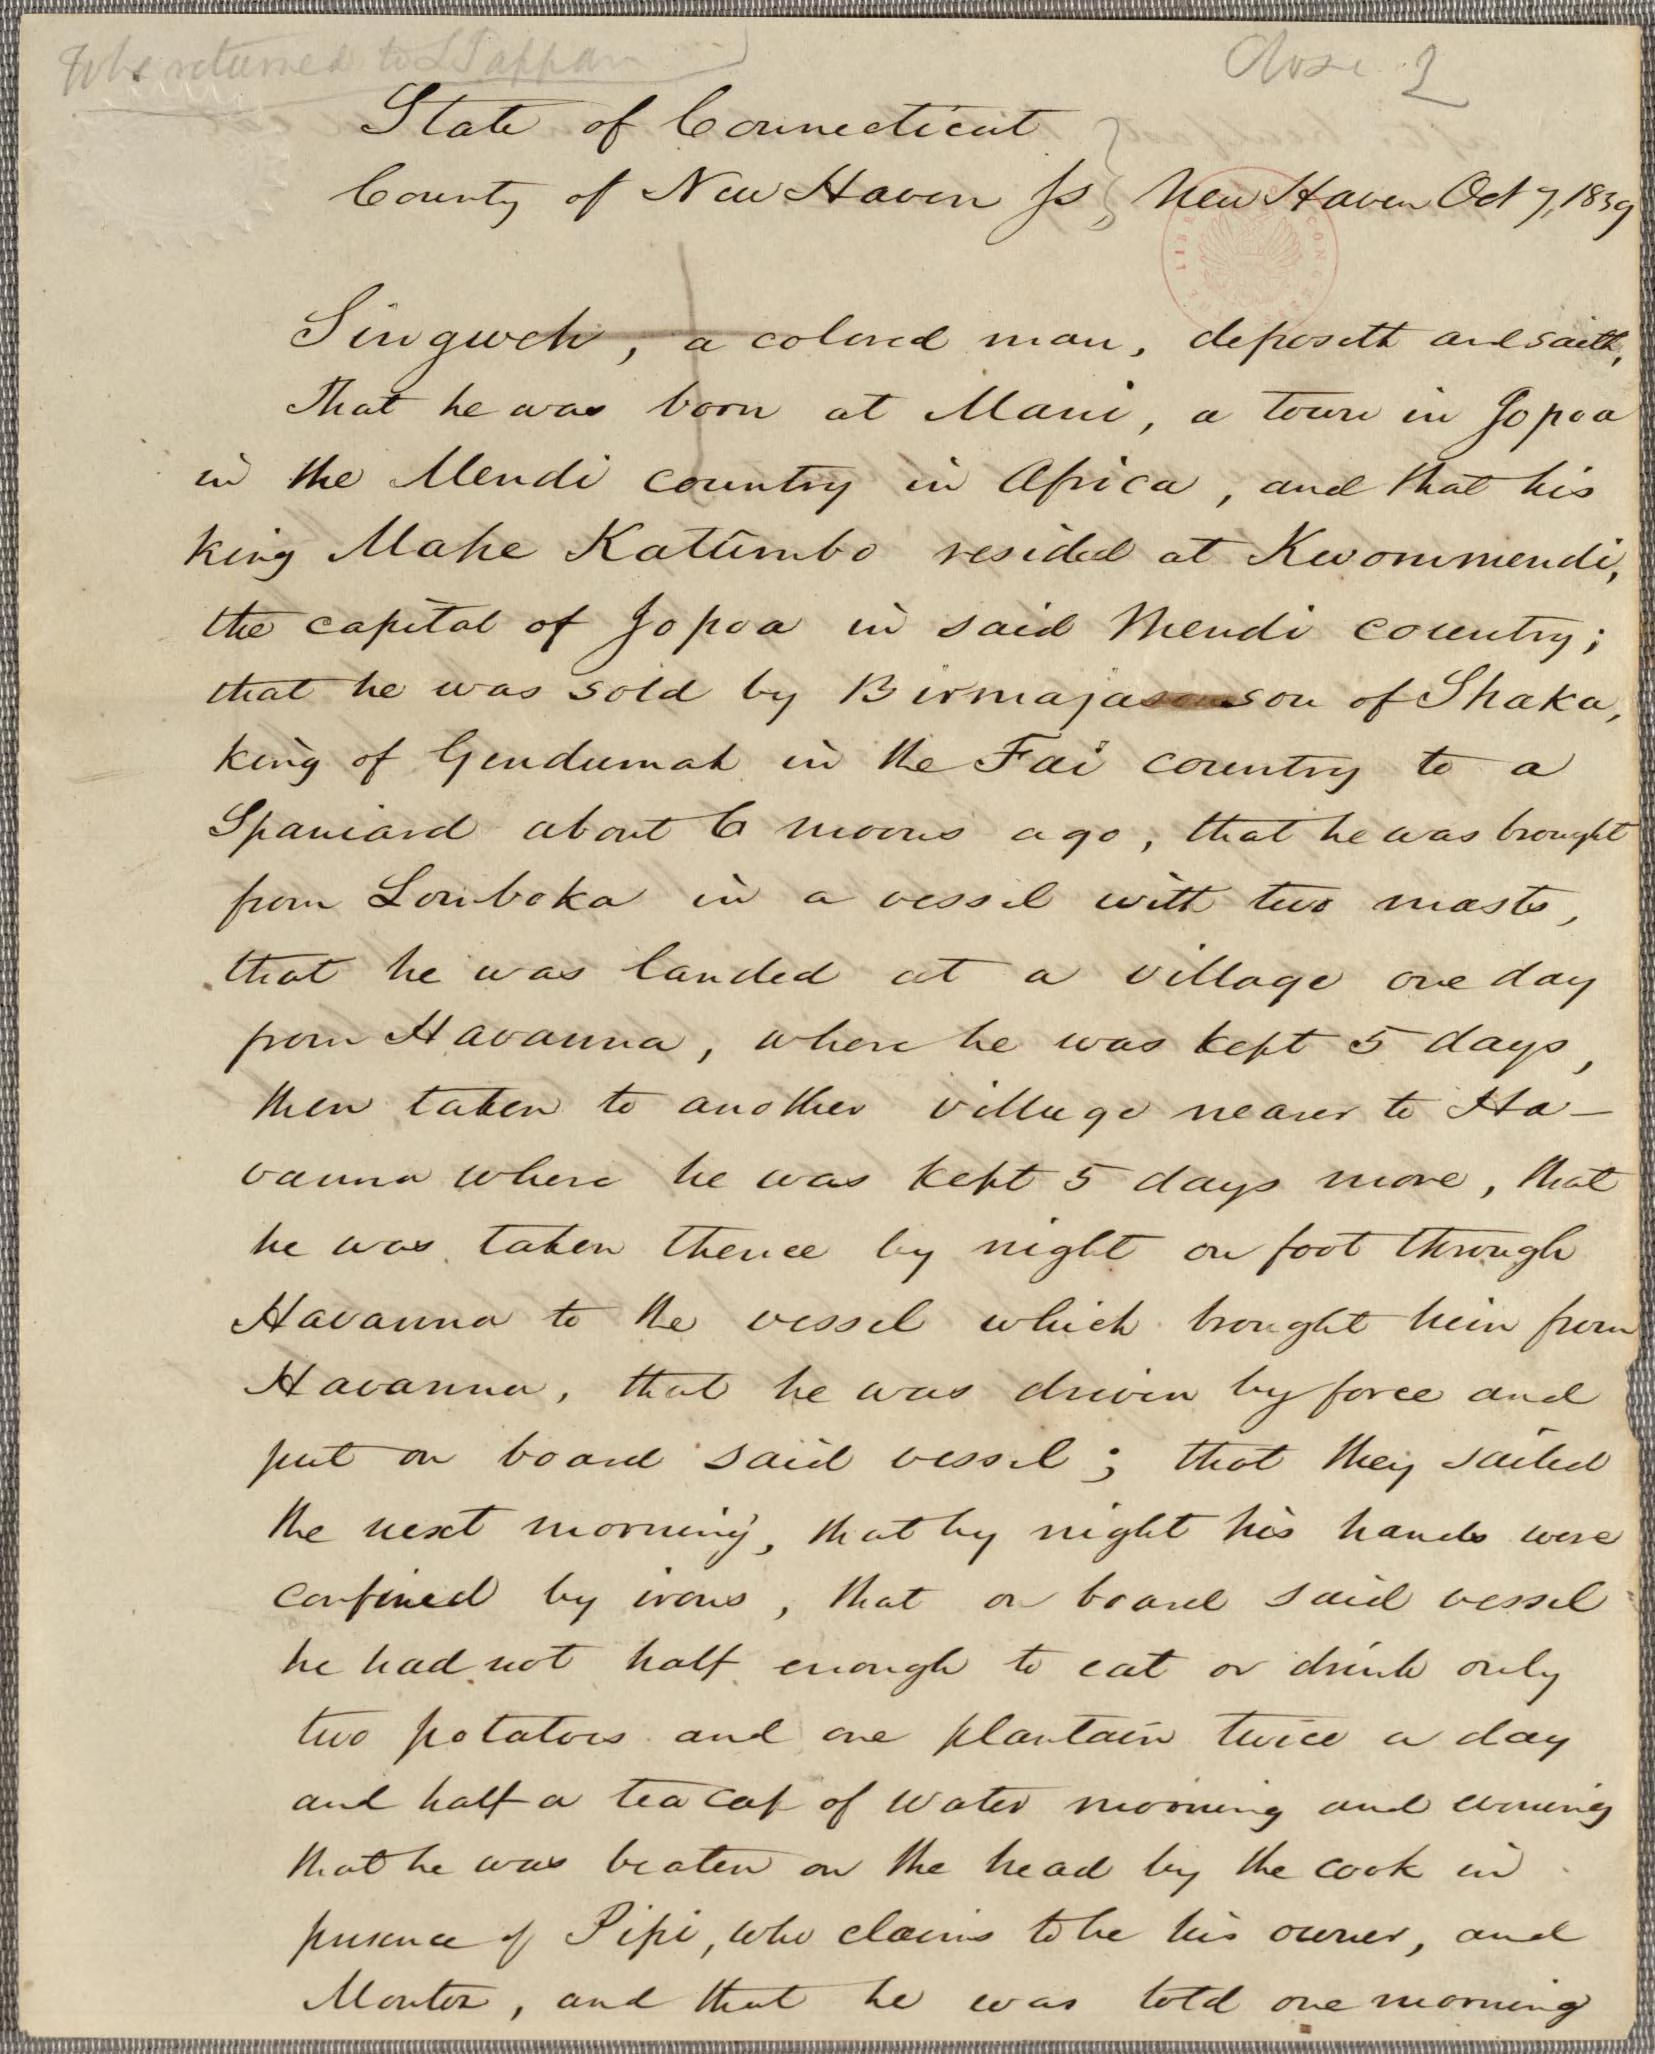 To be returned to L Tappan
State of Connecticut
County of New Haven Ss, New Haven Oct 7, 1839
Singweh, a colored man, deposeth and saith,
That he was born at Mani, a town in Jopoa
in the Mendi country in Africa, and that his
king Mahe Katumbo resided at Kwommendi,
the capital of Jopoa in said Mendi country;
that he was sold by Birmaja son of Shaka,
king of Gendumah in the Fai country to a
Spaniard about 6 moons ago, that he was brought
from Lomboka in a vessel with two masts,
that he was landed at a village one day
from Havanna, where he was kept 5 days,
then taken to another village nearer to Ha-
vanna where he was kept 5 days more, that
he was taken thence by night on foot through
Havanna to the vessel which brought him from
Havanna, that he was driven by force and
put on board said vessel; that they sailed
the next morning, that by night his hands were
confined by irons, that on board said vessel
he had not half enough to eat or drink only
two potatoes and one plantain twice a day
and half a tea cup of water morning and evening
that he was beaten on the head by the cook in
presence of Pipi, who claims to be his owner, and
Montez, and that he was told one morning